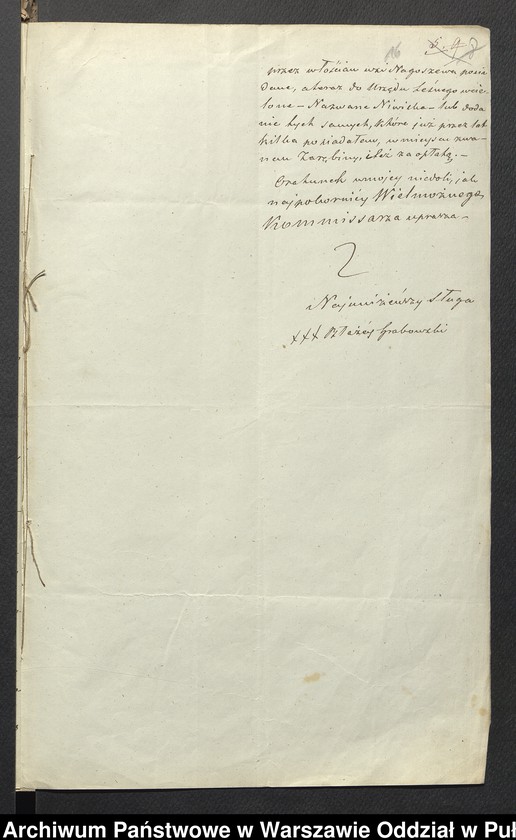 16
przez włościan wsi Nagoszewa posia
dane, a teraz do Urzędu Leśnego wcie
lone – Nazwane Niwilka – lub doda
nie tych samych, które już przez lat
kilka posiadałem, w miejscu zwa-
nem Zarębiny, i też za opłatą. –
O ratunek w mojej niedoli, jak
najpokorniej Wielmożnego
Kommissarza uprasza –
Najuniżeńszy Sługa
XXX Błażej Grabowski
Archiwum Państwowe w Warszawie Oddział w Puł